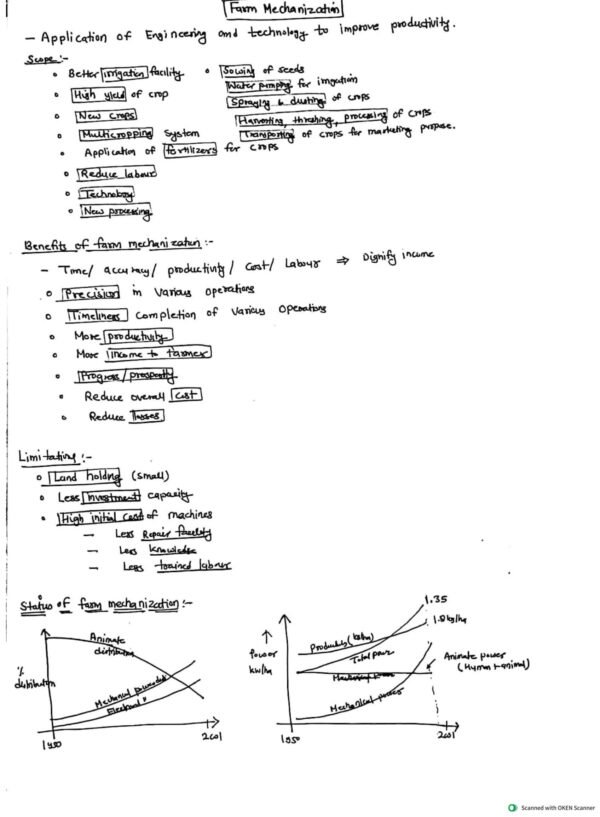 Farm Mechanization
- Application of Engineering and technology to improve productivity.
Scope :-
• Better irrigation facility
• High yield of crop
• New crops
• Multicropping System
• Application of fertilizers for crops
• Reduce labour
• Technology
• New processing
• Sowing of seeds
Water pumping for irrigation
Spraying & dusting of crops
Harvesting, threshing, processing of crops
Transporting of crops for marketing purpose.
Benefits of farm mechanization :-
- Time/ accuracy/ productivity/ Cost/ Labour ⇒ Dignify income
• Precision in various operations
• Timeliness completion of various operations
• More productivity
• More income to farmer
• Progress/prosperity
• Reduce overall cost
• Reduce losses
Limitation :-
• Land holding (small)
• Less investment capacity
• High initial cost of machines
- Less Repair facility
- Less knowledge
- Less trained labour
Status of farm mechanization :-
Animate
distribution
%
distribution
Mechanical
Electrical "
1950
2001
↑
Power
kw/ha
1.35
Total power
Animate power
(Human + animal)
Mechanical power
1950
2001
Scanned with OKEN Scanner